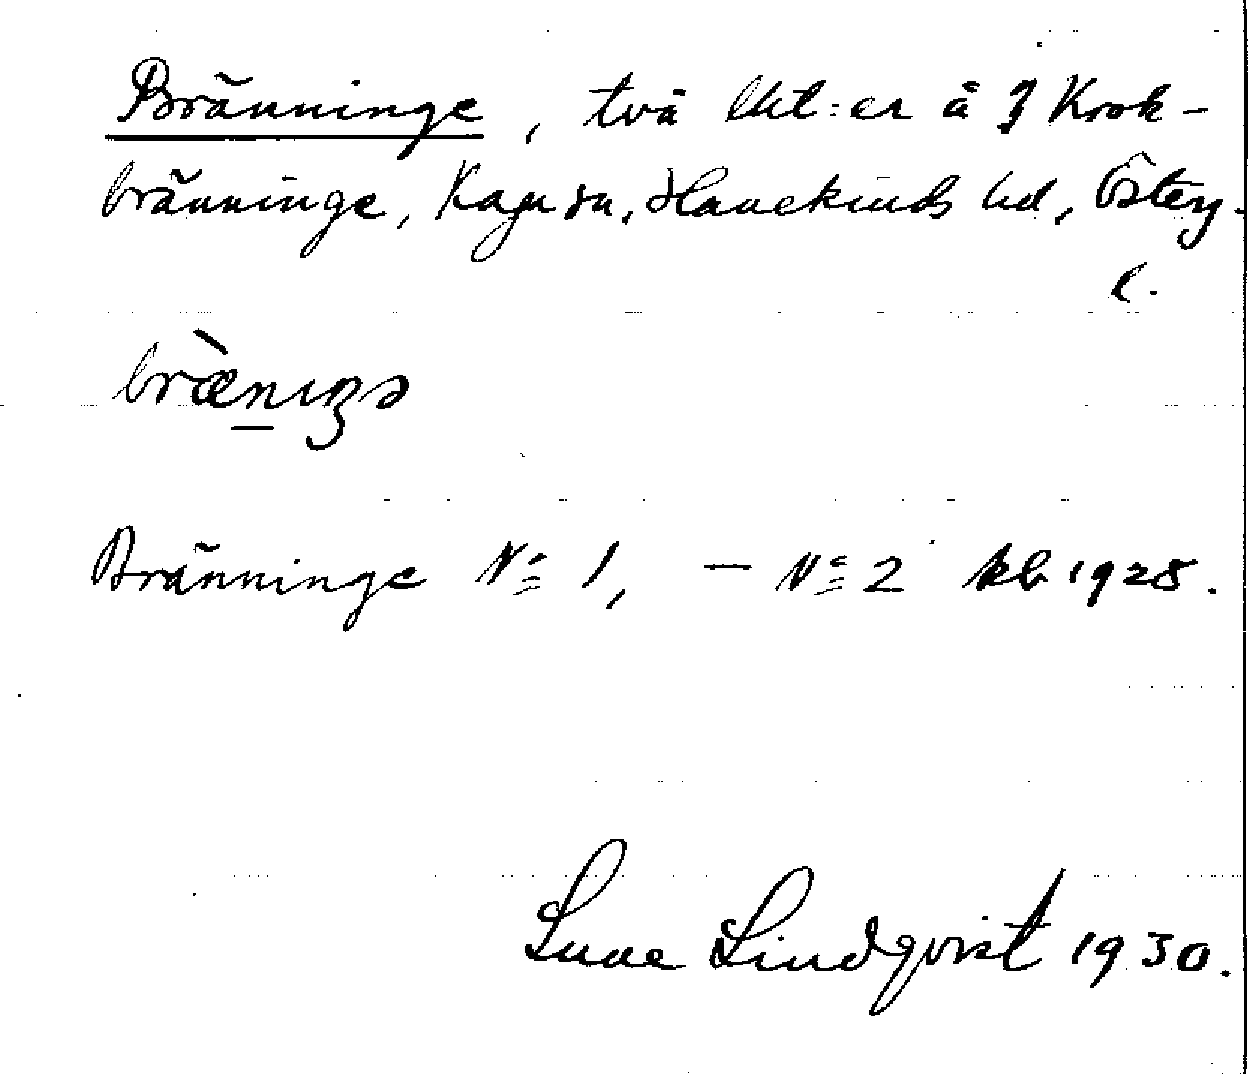 Bränninge, två lht:er å J Krok-
bränninge, Kaga sn, Hanekinds hd, Österg.
l.
bræ̀nıŋə
Bränninge N:o 1, — N:o 2 kb 1928.
Lindqvist 1930.